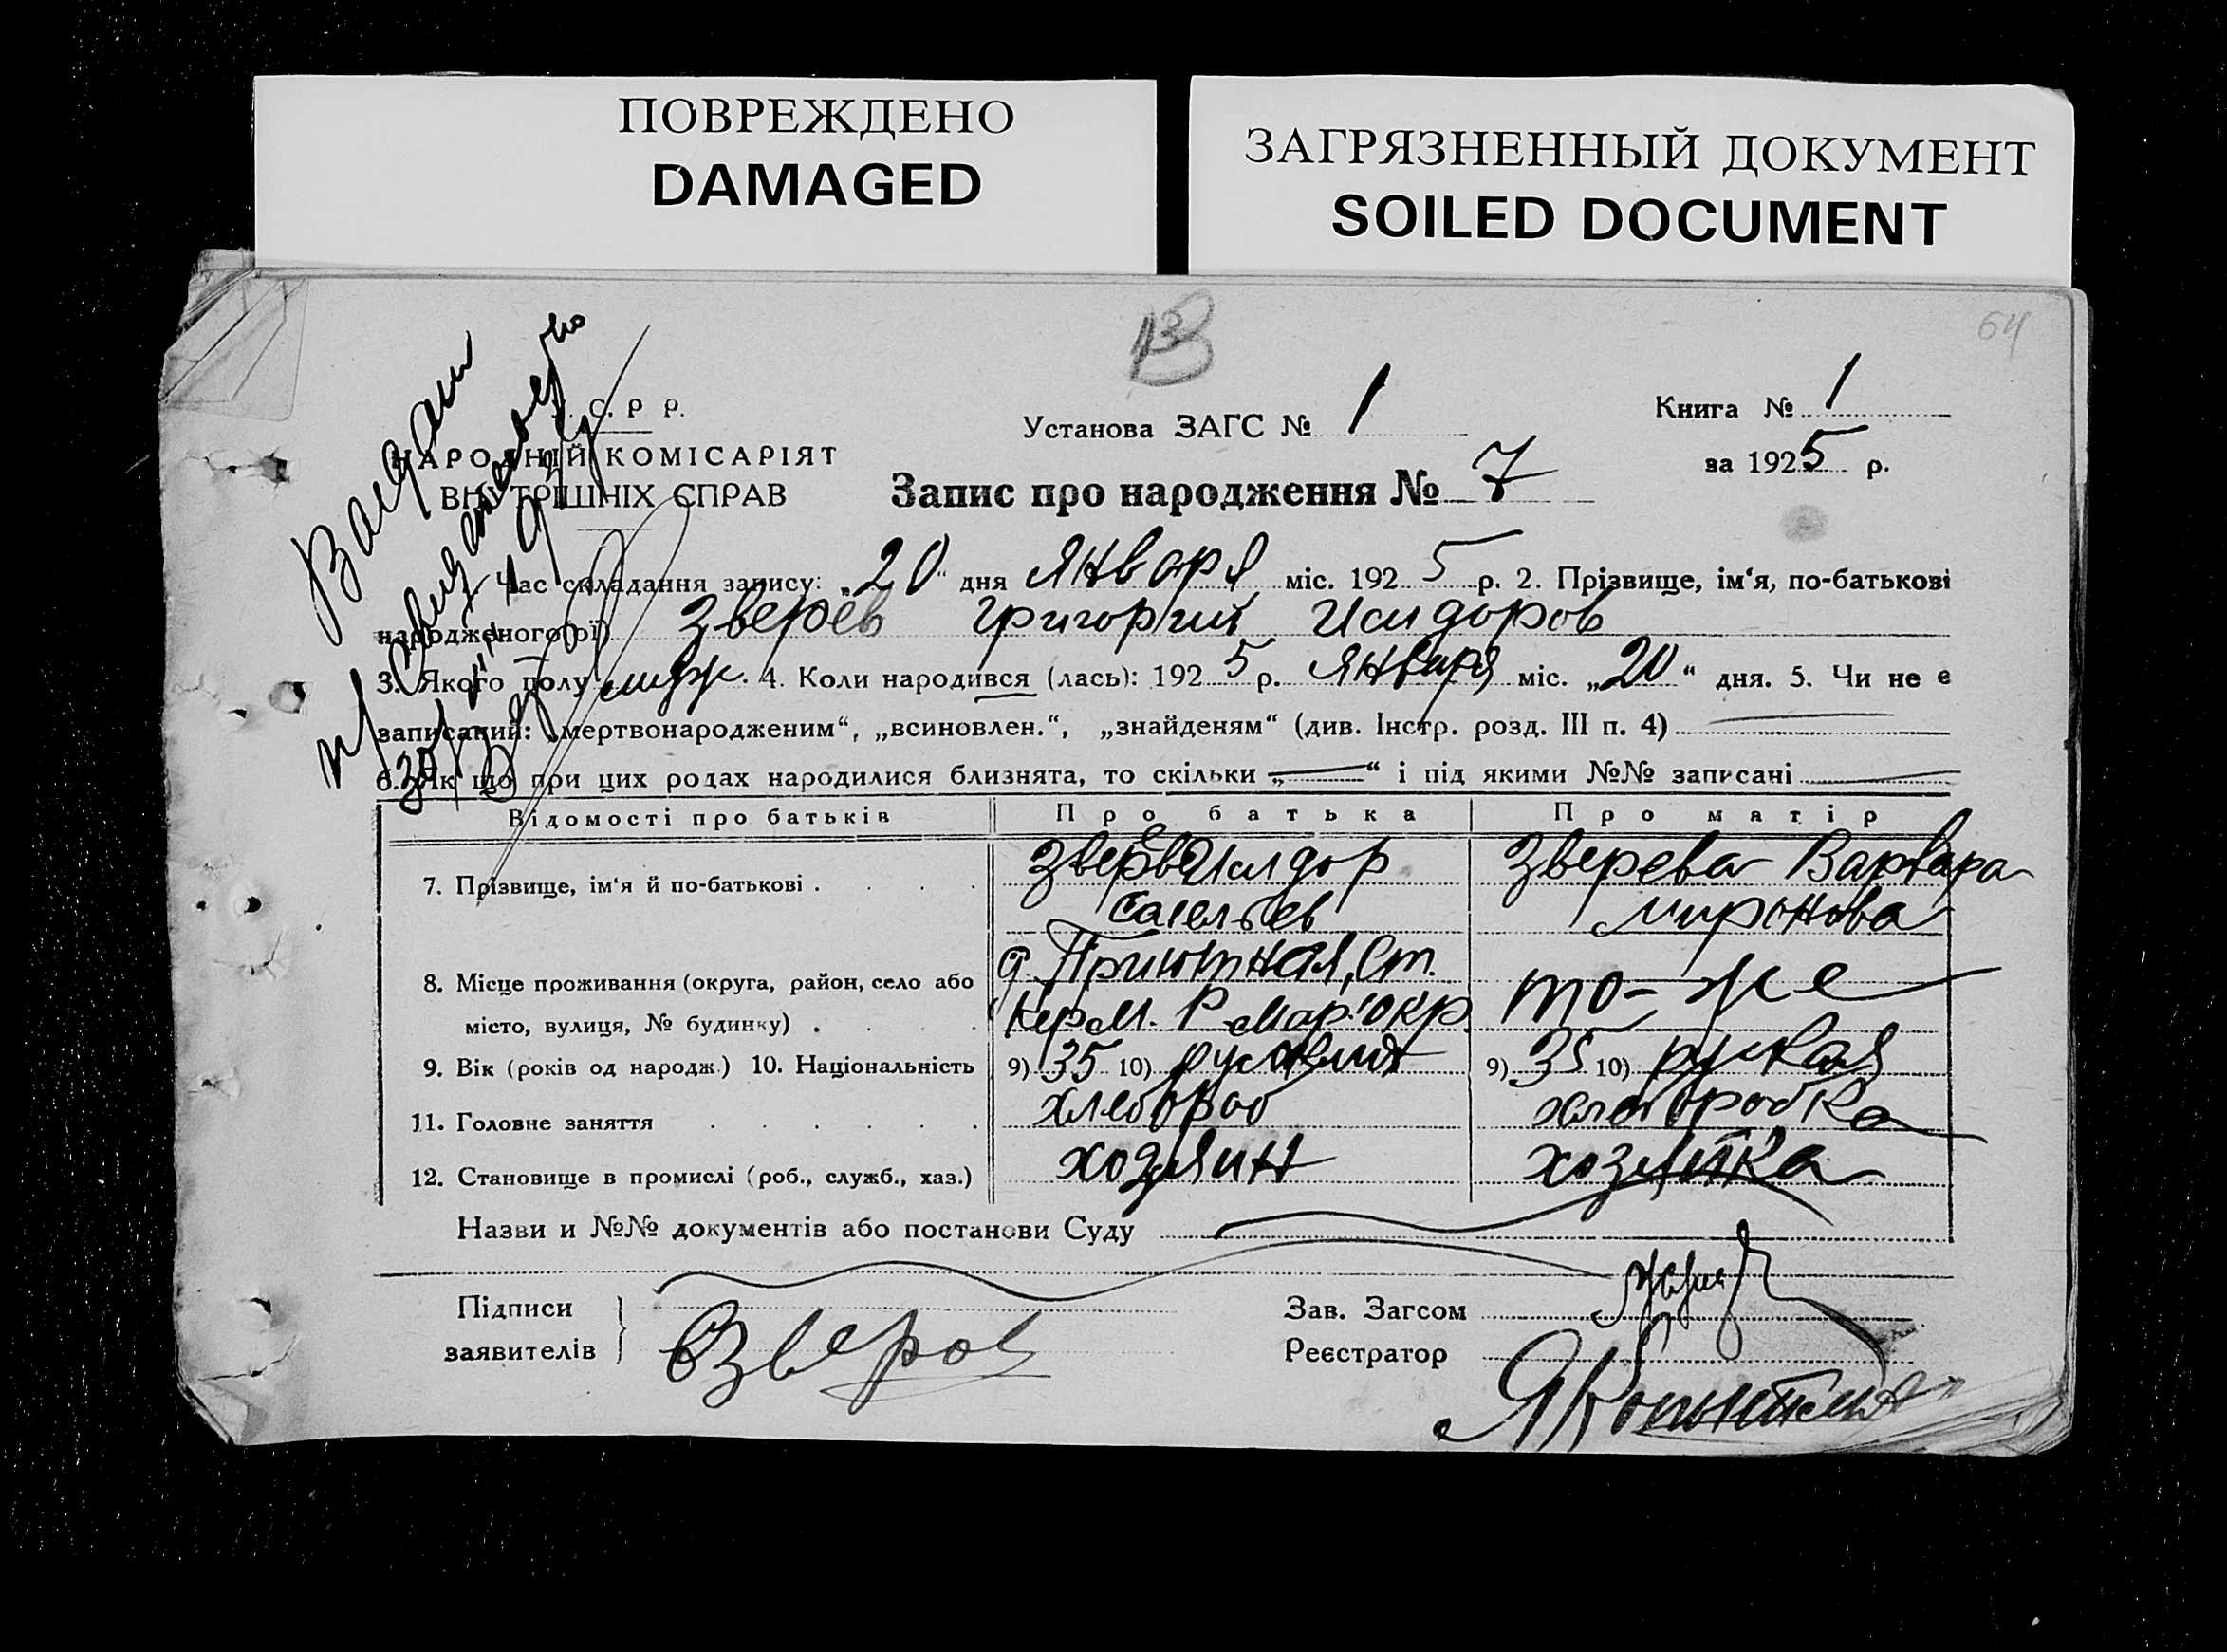 ПОВРЕЖДЕНО
DAMAGED
ЗАГРЯЗНЕННЫЙ ДОКУМЕНТ
SOILED DOCUMENT
64
С. Р Р.
НАРОДНІЙ КОМІСАРІЯТ
ВНУТРІШНІХ СПРАВ
Установа ЗАГС № 1
Книга № 1
за 1925 р.
Запис про народження № 7
Час складання запису: „20“ дня Января міс. 1925 р. 2. Прізвище, ім‘я, по-батькові
народженого(ої) Зверев Григорий Исидоров
3. Якого полу муж. 4. Коли народився (лась): 1925 р. Января міс. „20“ дня. 5. Чи не є
записаний: „мертвонародженим“, „всиновлен.“, „знайденям“ (див. Інстр. розд. III п. 4)
6. Як що при цих родах народилися близнята, то скільки „—“ і під якими №№ записані
Відомості про батьків Про батька Про матір
7. Прізвище, ім‘я й по-батькові . Зверев Исидор Зверева Варвара
Миронова
8. Місце проживання (округа, район, село або д. Приютная, Ст.
місто, вулиця, № будинку) . Керм. Р Мар. Окр. то-же
9. Вік (років од народж.) 10. Національність 9) 35 10) 9) 35 10) руская
11. Головне заняття хлебороб хлеборобка
12. Становище в промислі (роб., служб., хаз.) хозяин хозяйка
Назви и №№ документів або постанови Суду
Підписи
заявителів
Зверев
Зав. Загсом
Реєстратор